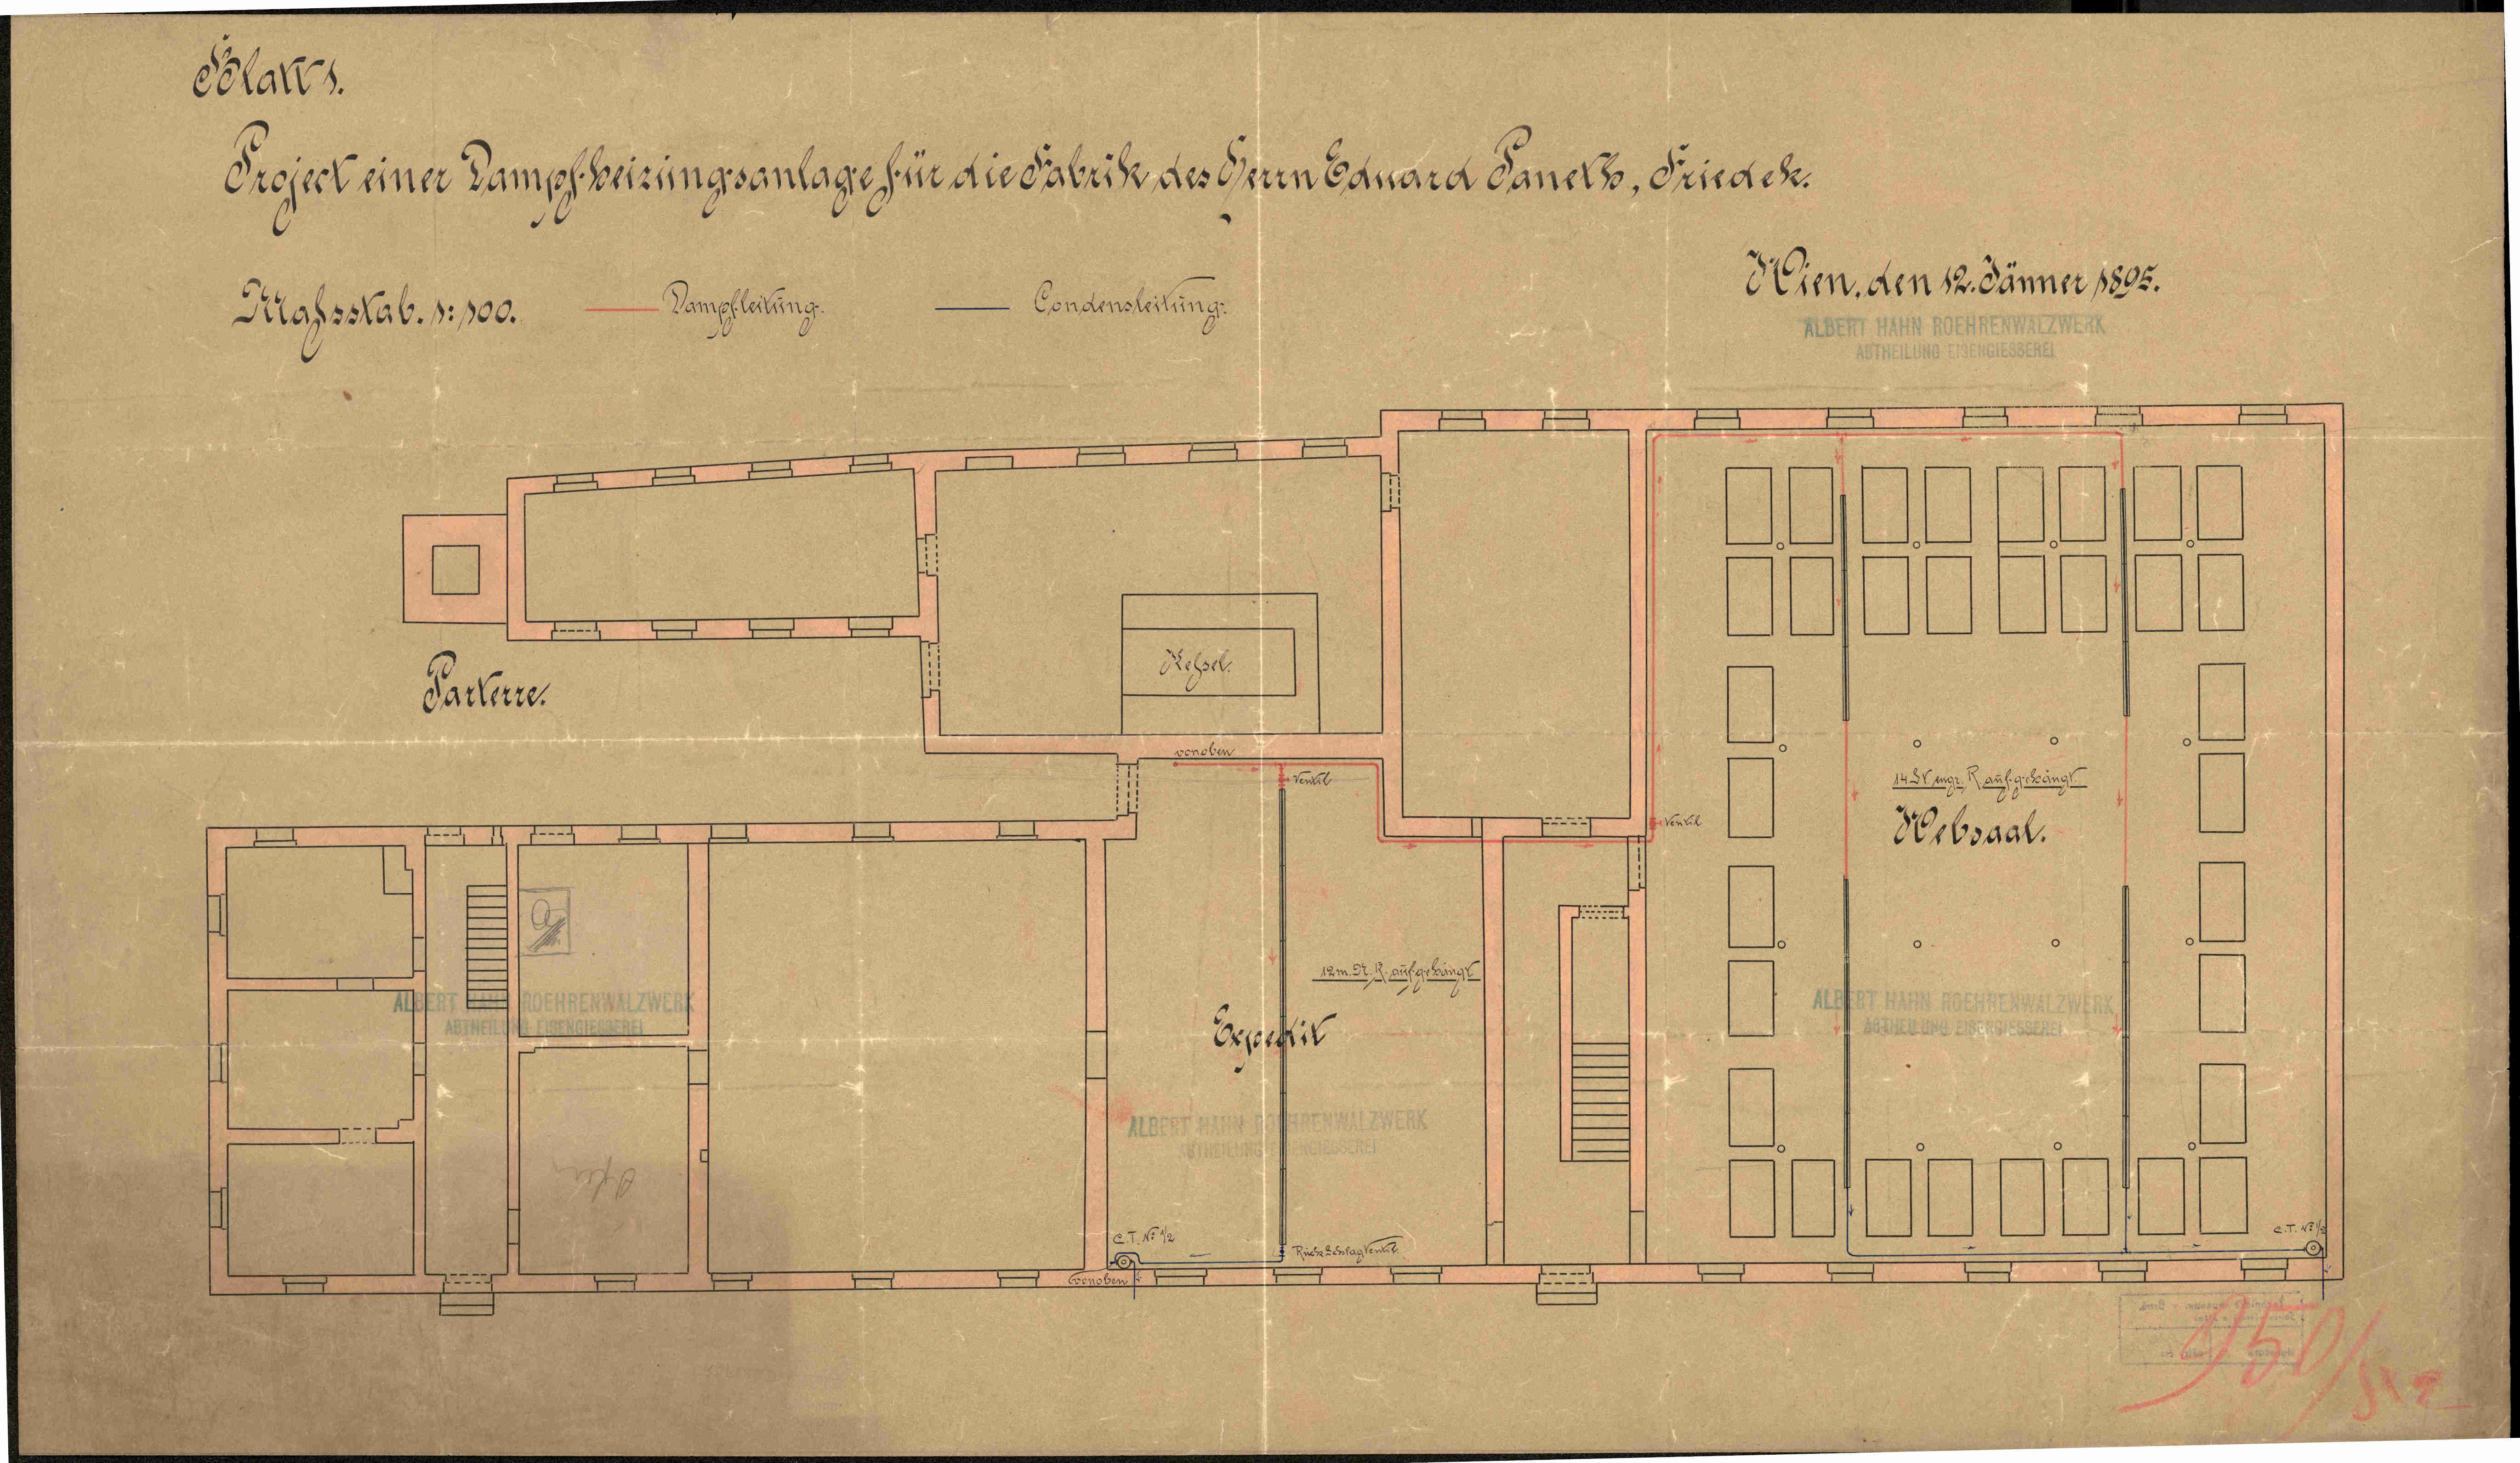 Blatt 1.
Project einer Dampfheizungsanlage für die Fabrik des Herrn Eduard Paneth, Friedek.
Wien, den 12. Jänner 1895.
Maßstab. 1:100.
Dampfleitung.
Condensleitung.
ALBERT HAHN ROEHRENWALZWERK
ABTHEILUNG EISENGIESSEREI
Parterre.
Kessel.
von oben
Ventil
Ventil
aufgehängt
Websaal.
12 m. aufgehängt
ALBERT HAHN ROEHRENWALZWERK
ABTHEILUNG EISENGIESSEREI
ALBERT HAHN ROEHRENWALZWERK
ABTHEILUNG EISENGIESSEREI
Expedit
ALBERT HAHN ROEHRENWALZWERK
ABTHEILUNG EISENGIESSEREI
Ofen
C.T. No 1/2
C.T. No 1/2
Rückschlagventil.
von oben
950/